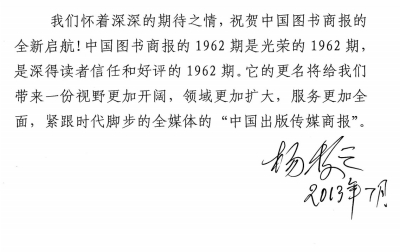 我们怀着深深的期待之情，祝贺中国图书商报的
全新启航！中国图书商报的 1962 期是光荣的 1962 期，
是深得读者信任和好评的 1962 期。它的更名将给我们
带来一份视野更加开阔，领域更加扩大，服务更加全
面，紧跟时代脚步的全媒体的“中国出版传媒商报”。
杨牧之
2013年7月